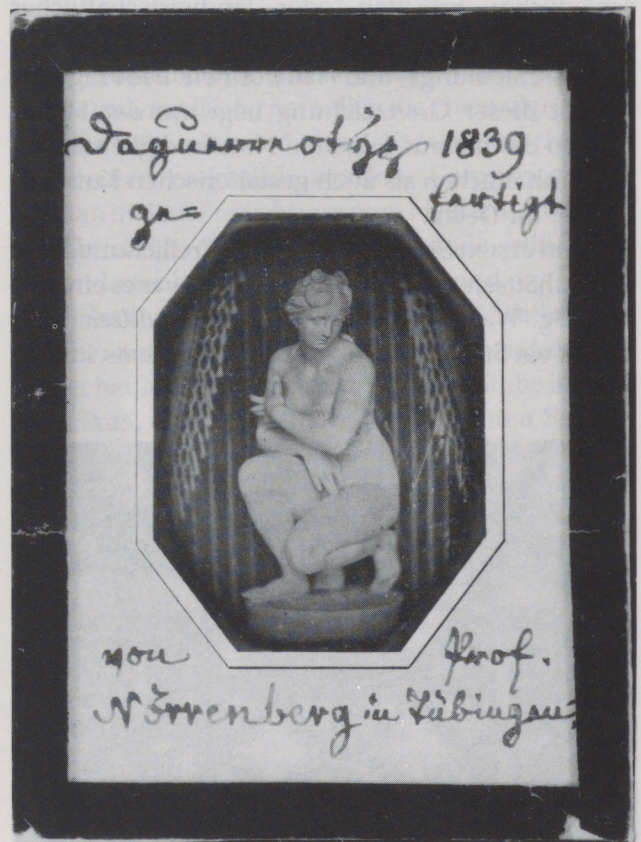 Daguerreotyp 1839
ge= fertigt
von Prof.
Nörrenberg in Tübingen